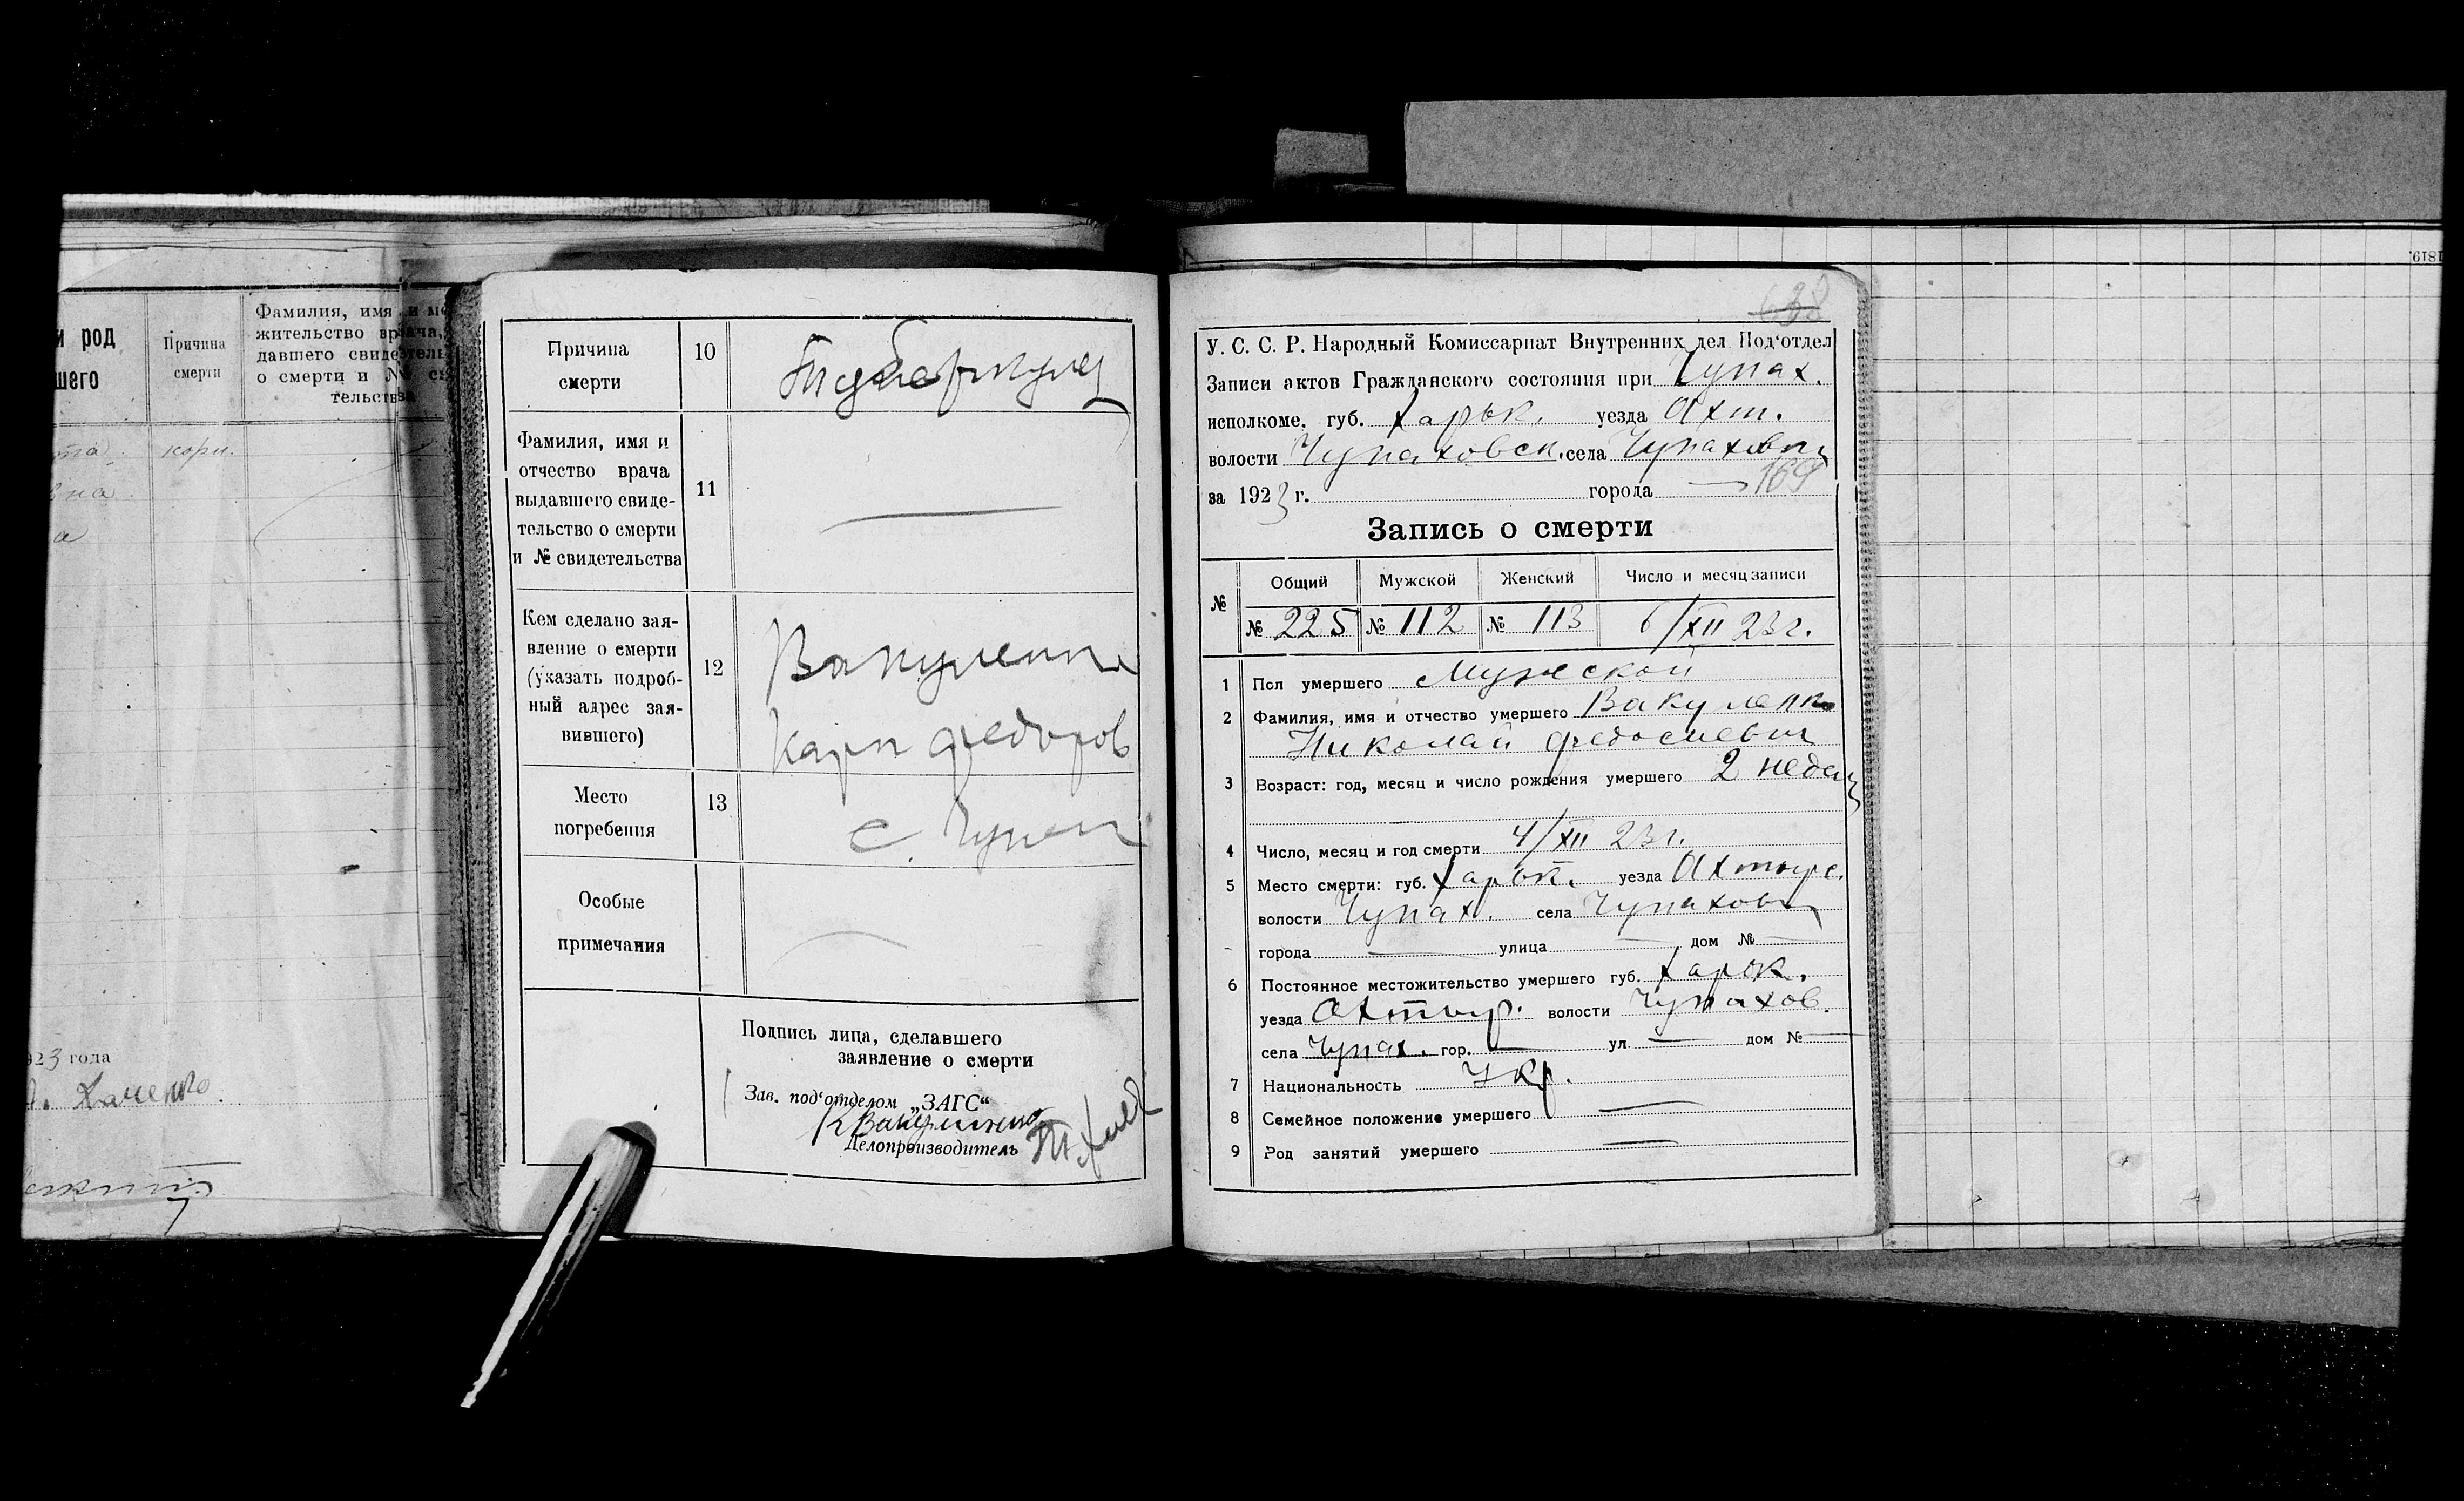 и род
шего
Причина
смерти
Фамилия, имя и ме
жительство врача,
давшего свидетель
о смерти и № св
тельства
кори.
на
а
923 года
Причина
смерти
10
Туберкулез
Фамилия, имя и
отчество врача
выдавшего свиде-
тельство о смерти
и № свидетельства
11
Кем сделано зая-
вление о смерти
(указать подроб-
ный адрес зая-
вившего)
12
Вакуленко
Карп Федоров
Место
погребения
13
с. Чупах
Особые
примечания
Подпись лица, сделавшего
заявление о смерти
Зав. под'отделом „ЗАГС“
КВакуленко
Делопроизводитель
638
У. С. С. Р. Народный Комиссариат Внутренних дел Под'отдел
Записи актов Гражданского состояния при Чупах.
исполкоме. губ. Харьк. уезда Ахт.
волости Чупаховск. села Чупаховки
за 1923 г. города — 169
Запись о смерти
№ Общий Мужской Женский Число и месяц записи
№ 225 № 112 № 113 6/XII 23 г.
1 Пол умершего Мужской
2 Фамилия, имя и отчество умершего Вакуленко
Николай Федосиевич
3 Возраст: год, месяц и число рождения умершего 2 недели
4 Число, месяц и год смерти 4/XII 23 г.
5 Место смерти: губ. Харьк. уезда Ахтырс.
волости Чупах. села Чупаховки
города — улица — дом № —
6 Постоянное местожительство умершего губ. Харьк.
уезда Ахтыр. волости Чупахов.
села Чупах. гор. — ул. — дом № —
7 Национальность Укр.
8 Семейное положение умершего —
9 Род занятий умершего —